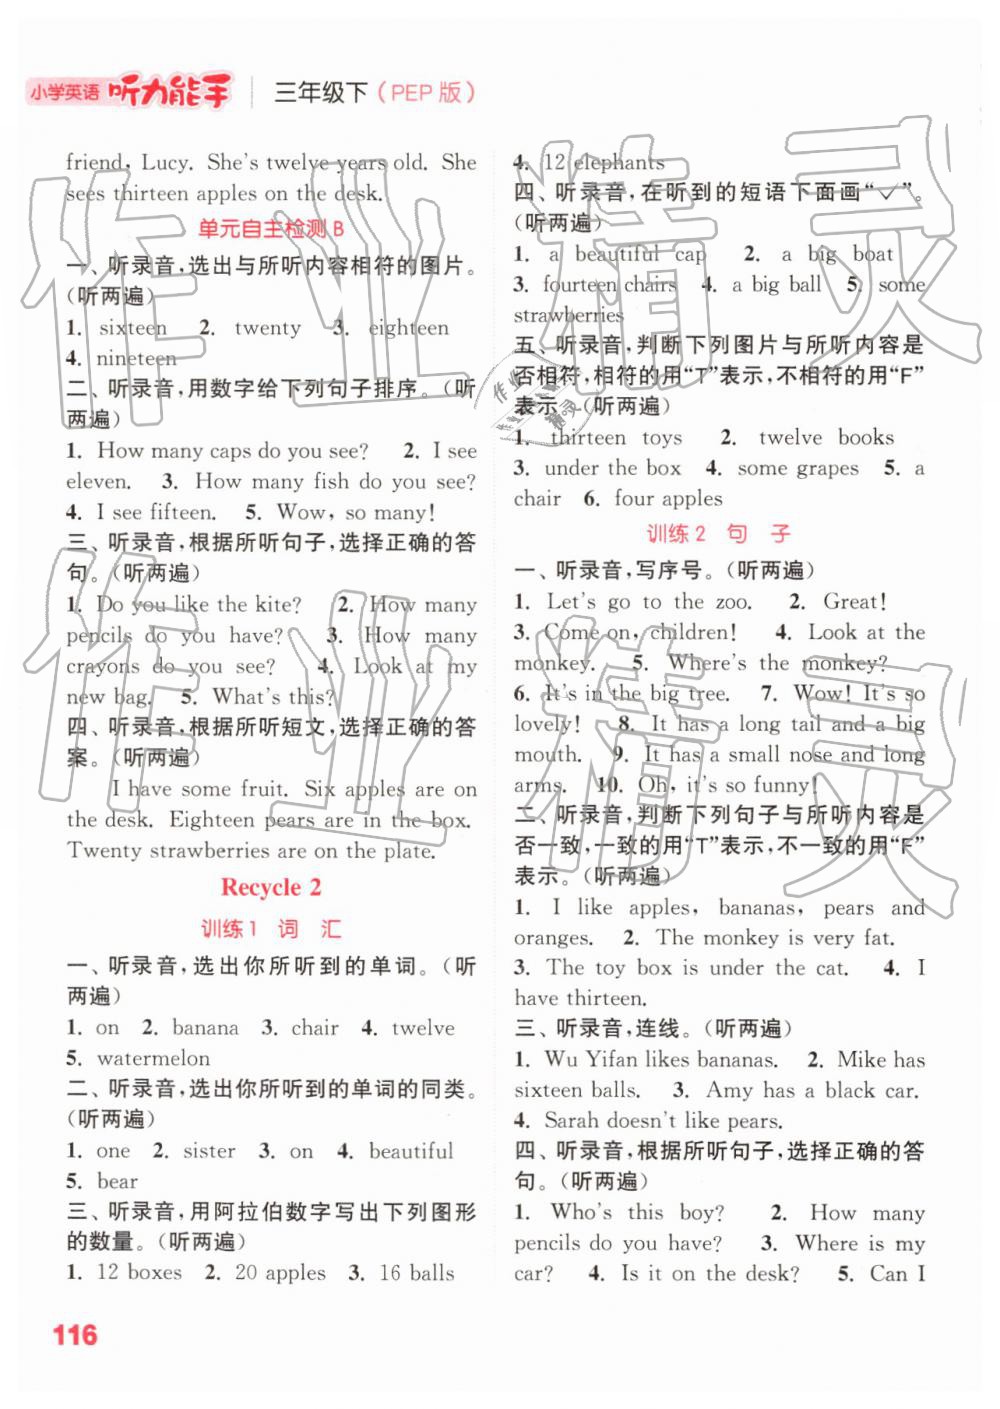 小学英语 听力能手 三年级下（PEP 版）
friend, Lucy. She's twelve years old. She
sees thirteen apples on the desk.
单元自主检测 B
一、听录音,选出与所听内容相符的图片。
(听两遍)
1. sixteen 2. twenty 3. eighteen
4. nineteen
二、听录音,用数字给下列句子排序。(听
两遍)
1. How many caps do you see? 2. I see
eleven. 3. How many fish do you see?
4. I see fifteen. 5. Wow, so many!
三、听录音,根据所听句子,选择正确的答
句。(听两遍)
1. Do you like the kite? 2. How many
pencils do you have? 3. How many
crayons do you see? 4. Look at my
new bag. 5. What's this?
四、听录音,根据所听短文,选择正确的答
案。(听两遍)
I have some fruit. Six apples are on
the desk. Eighteen pears are in the box.
Twenty strawberries are on the plate.
Recycle 2
训练1 词 汇
一、听录音,选出你所听到的单词。(听
两遍)
1. on 2. banana 3. chair 4. twelve
5. watermelon
二、听录音,选出你所听到的单词的同类。
(听两遍)
1. one 2. sister 3. on 4. beautiful
5. bear
三、听录音,用阿拉伯数字写出下列图形
的数量。(听两遍)
1. 12 boxes 2. 20 apples 3. 16 balls
4. 12 elephants
四、听录音,在听到的短语下面画“✓”。
(听两遍)
1. a beautiful cap 2. a big boat
3. fourteen chairs 4. a big ball 5. some
strawberries
五、听录音,判断下列图片与所听内容是
否相符,相符的用“T”表示,不相符的用“F”
表示。(听两遍)
1. thirteen toys 2. twelve books
3. under the box 4. some grapes 5. a
chair 6. four apples
训练2 句 子
一、听录音,写序号。(听两遍)
1. Let's go to the zoo. 2. Great!
3. Come on, children! 4. Look at the
monkey. 5. Where's the monkey?
6. It's in the big tree. 7. Wow! It's so
lovely! 8. It has a long tail and a big
mouth. 9. It has a small nose and long
arms. 10. Oh, it's so funny!
二、听录音,判断下列句子与所听内容是
否一致,一致的用“T”表示,不一致的用“F”
表示。(听两遍)
1. I like apples, bananas, pears and
oranges. 2. The monkey is very fat.
3. The toy box is under the cat. 4. I
have thirteen.
三、听录音,连线。(听两遍)
1. Wu Yifan likes bananas. 2. Mike has
sixteen balls. 3. Amy has a black car.
4. Sarah doesn't like pears.
四、听录音,根据所听句子,选择正确的答
句。(听两遍)
1. Who's this boy? 2. How many
pencils do you have? 3. Where is my
car? 4. Is it on the desk? 5. Can I
116
作业精灵